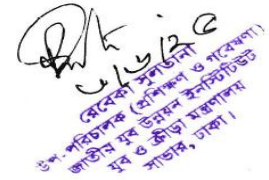 ৮/৬/২৫
রেবেকা সুলতানা
উপ-পরিচালক (প্রশিক্ষণ ও গবেষণা)
জাতীয় যুব উন্নয়ন ইনস্টিটিউট
যুব ও ক্রীড়া মন্ত্রণালয়
সাভার, ঢাকা।